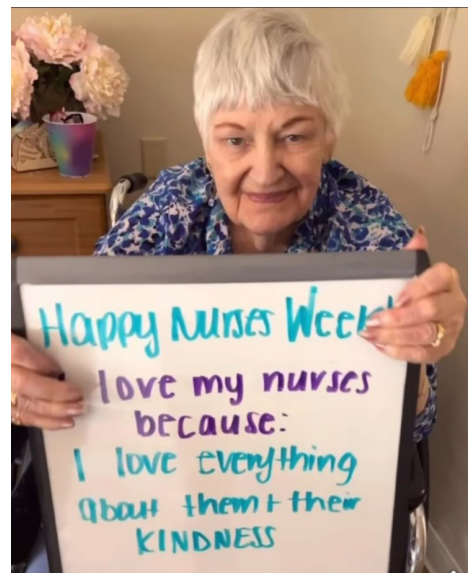 Happy Nurses Week!
love my nurses
because:
I love everything
about them + their
KINDNESS